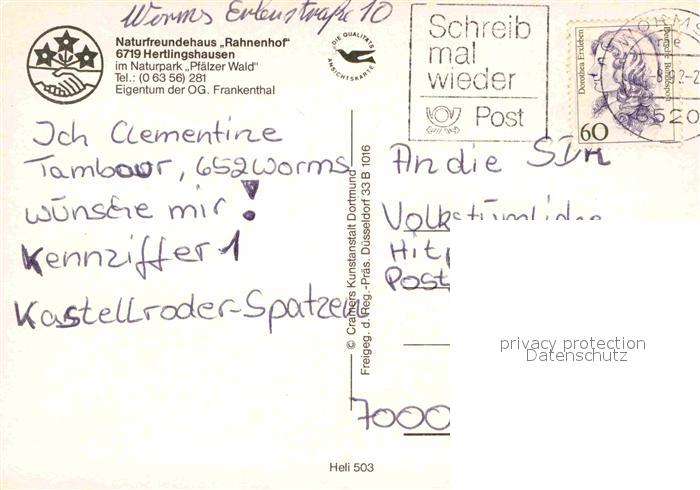 Worms Erlenstraße 10
Naturfreundehaus „Rahnenhof"
6719 Hertlingshausen
im Naturpark „Pfälzer Wald"
Tel.: (0 63 56) 281
Eigentum der OG. Frankenthal
DIE QUALITÄTS
ANSICHTSKARTE
Schreib
mal
wieder
Post
Dorothea Erxleben
Deutsche Bundespost
60
WORMS
6520
Ich Clementine
Tambour, 652 Worms
wünsche mir!
Kennziffer 1
Kastellroder-Spatzen
© Cramers Kunstanstalt Dortmund
Freigeg. d. Reg.-Präs. Düsseldorf 33 B 1016
An die SDR
Volkstümliche
Hitp
Post
7000
privacy protection
Datenschutz
Heli 503